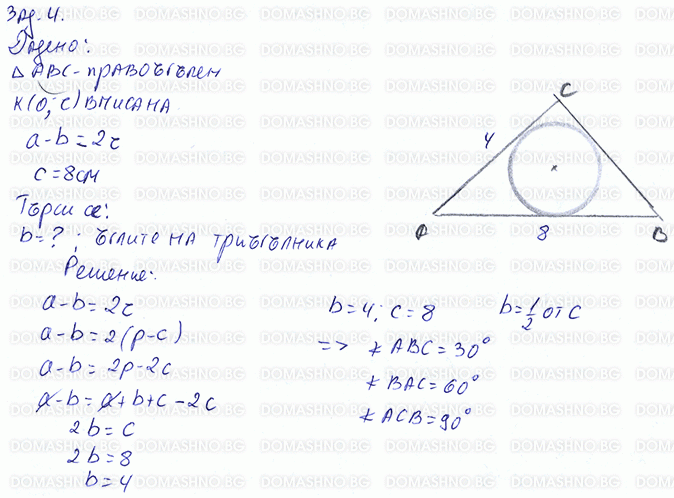 Зад. 4.
Дадено:
△ ABC - правоъгълен
k(O; r) вписана
a-b=2r
c=8см
Търси се:
b=? ; ъглите на триъгълника
Решение:
a-b=2r
a-b=2(p-c)
a-b=2p-2c
a-b=a+b+c-2c
2b=c
2b=8
b=4
b=4; c=8 b=1/2 от c
=> ∢ ABC=30°
∢ BAC=60°
∢ ACB=90°
C
4
A 8 B
DOMASHNO.BG